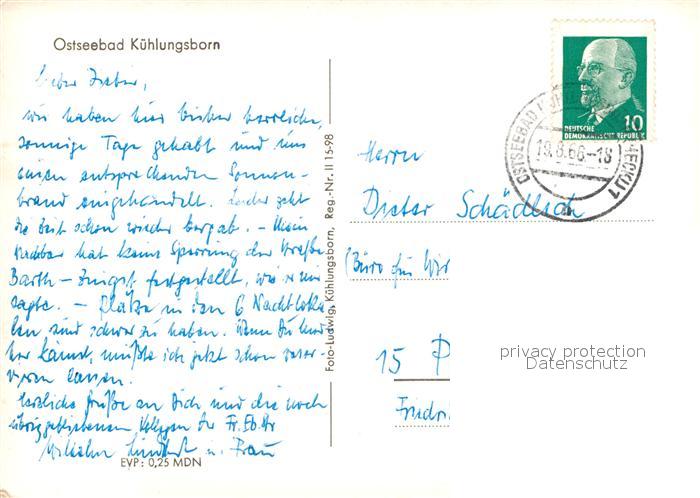 Ostseebad Kühlungsborn
Lieber Dieter,
wir haben hier bisher herrliche,
sonnige Tage gehabt und uns
einen entsprechenden Sonnen-
brand eingehandelt. Leider geht
die Zeit schon wieder bergab. – Mein
Nachbar hat keine Sperrung der Straße
Barth – Zingst festgestellt, wie er mir
sagte. – Plätze in den 6 Nachtloka-
len sind schwer zu haben. Wenn Du
her kämst, müßte ich jetzt schon reser-
vieren lassen.
Herzliche Grüße an Dich und die noch
übriggebliebenen Kollegen der
Wilhelm u. Frau
EVP: 0,25 MDN
Foto-Ludwig, Kühlungsborn, Reg.-Nr. II 15-98
DEUTSCHE
DEMOKRATISCHE REPUBLIK
10
OSTSEEBAD
19.8.66-18
Herrn
Dieter Schädlich
(Büro für Wir
15 P
Friedri
privacy protection
Datenschutz